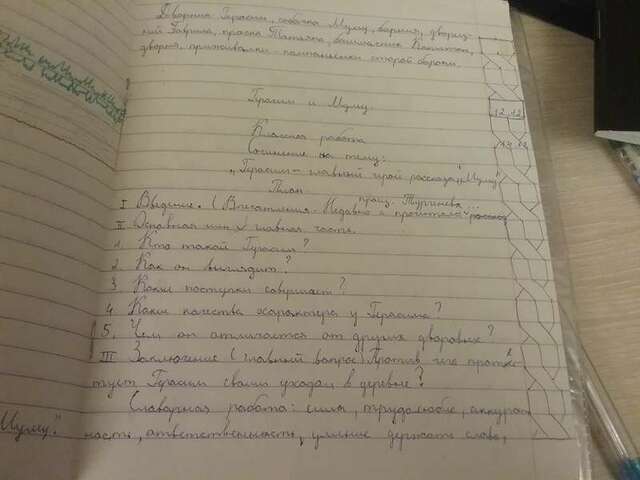 Дворник Герасим, собачка Муму, барыня, дворец-
кий Гаврила, прачка Татьяна, башмачник Капитон,
дворня, приживалки - компаньонки старой барыни.
Герасим и Муму.
12.12
Классная работа
14.12
Сочинение на тему:
„Герасим - главный герой рассказа „Муму"
План
произ. Тургенева...
I Введение. (Впечатления. Недавно я прочитала рассказ
II Основная или главная часть.
1. Кто такой Герасим?
2 Как он выглядит?
3 Какие поступки совершает?
4 Какие качества характера у Герасима?
5. Чем он отличается от других дворовых?
III Заключение (главный вопрос) Против чего протес-
тует Герасим своим уходом в деревню?
Словарная работа: сила, трудолюбие, аккурат-
Муму." ность, ответственность, умение держать слово,